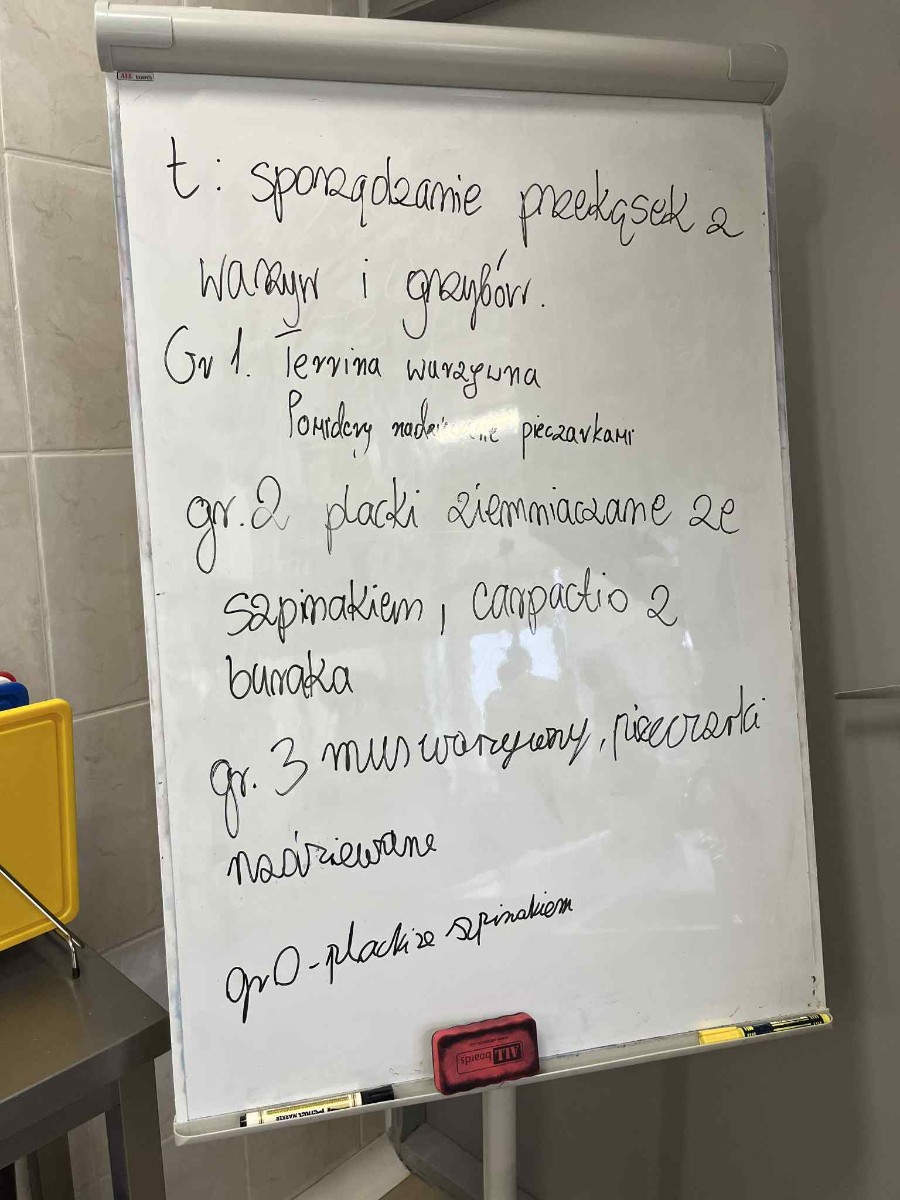 ALL boards
t: sporządzanie przekąsek z
warzyw i grzybów.
Gr 1. Terrina warzywna
Pomidory nadziewane pieczarkami
gr. 2 placki ziemniaczane ze
szpinakiem, carpactio z
buraka
gr. 3 mus warzywny, pieczarki
nadziewane
gr 0 - placki ze szpinakiem
ALL boards